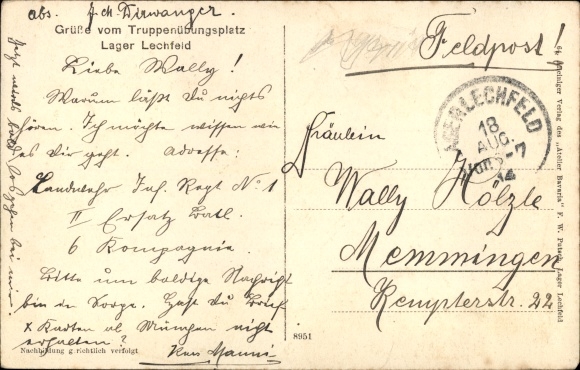 abs. J. M. Dirwanger.
Grüße vom Truppenübungsplatz
Lager Lechfeld
Liebe Wally!
Warum läßt Du nichts
hören. Ich möchte wissen wie
es Dir geht. Adresse:
Landwehr Inf. Regt No 1
II Ersatz Batl.
6 Kompagnie.
Bitte um baldige Nachricht
bin in Sorge. Hast Du Brief
x Karten ab München nicht
erhalten?
Jetzt werds bald losgehen bei mir.
Nachbildung gerichtlich verfolgt
Feldpost!
LAGER LECHFELD
18
AUG
14
Fräulein
Wally Hölzle
Memmingen
Kempterstr. 22
8951
Alleiniger Verlag des „Atelier Bavaria" F. W. Putsch, Lager Lechfeld